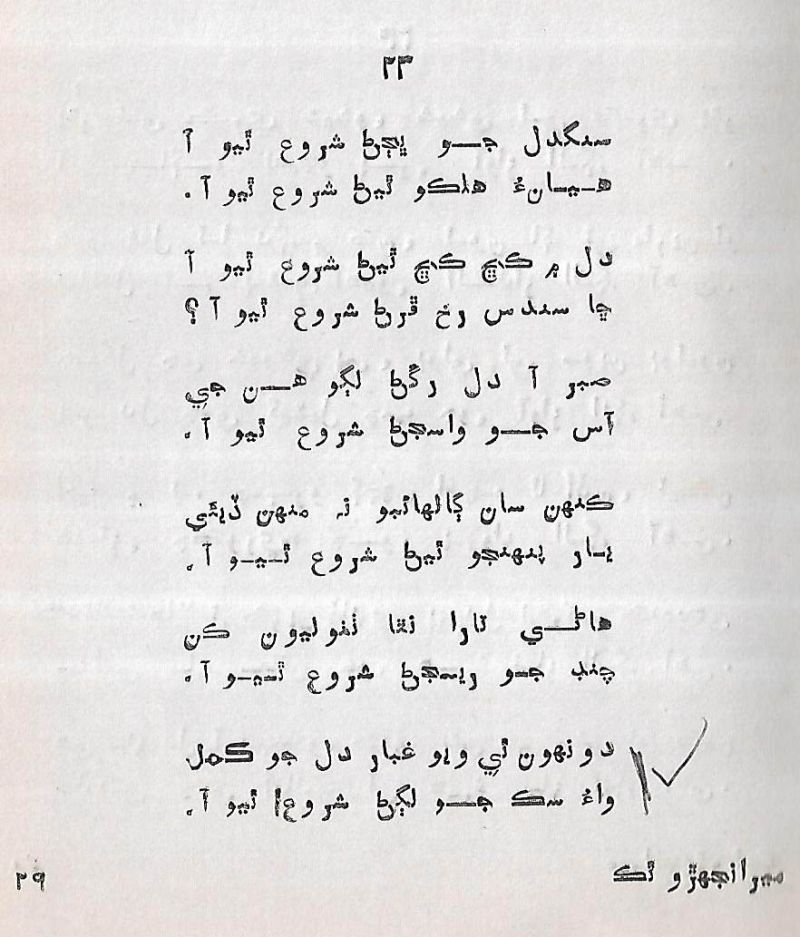 ۲۳
سنگدل جو ڀڄڻ شروع ٿيو آ
هيانءُ هلڪو ٿيڻ شروع ٿيو آ.
دل ۾ ڪچ ڪچ ٿيڻ شروع ٿيو آ
ڇا سندس رخ ڦرڻ شروع ٿيو آ؟
صبر آ دل رڱڻ لڳو هن جي
آس جو واسجڻ شروع ٿيو آ.
ڪنهن سان ڳالهائبو نہ منهن ڏيئي
يار پنهنجو ٿيڻ شروع ٿيو آ.
هاڻي تارا نٿا ٺٺوليون ڪن
چنڊ جو ريسجڻ شروع ٿيو آ.
دونهون ٿي ويو غبار دل جو ڪمل
واءُ سڪ جو لڳڻ شروع ٿيو آ.
۲۹
ٿڪ